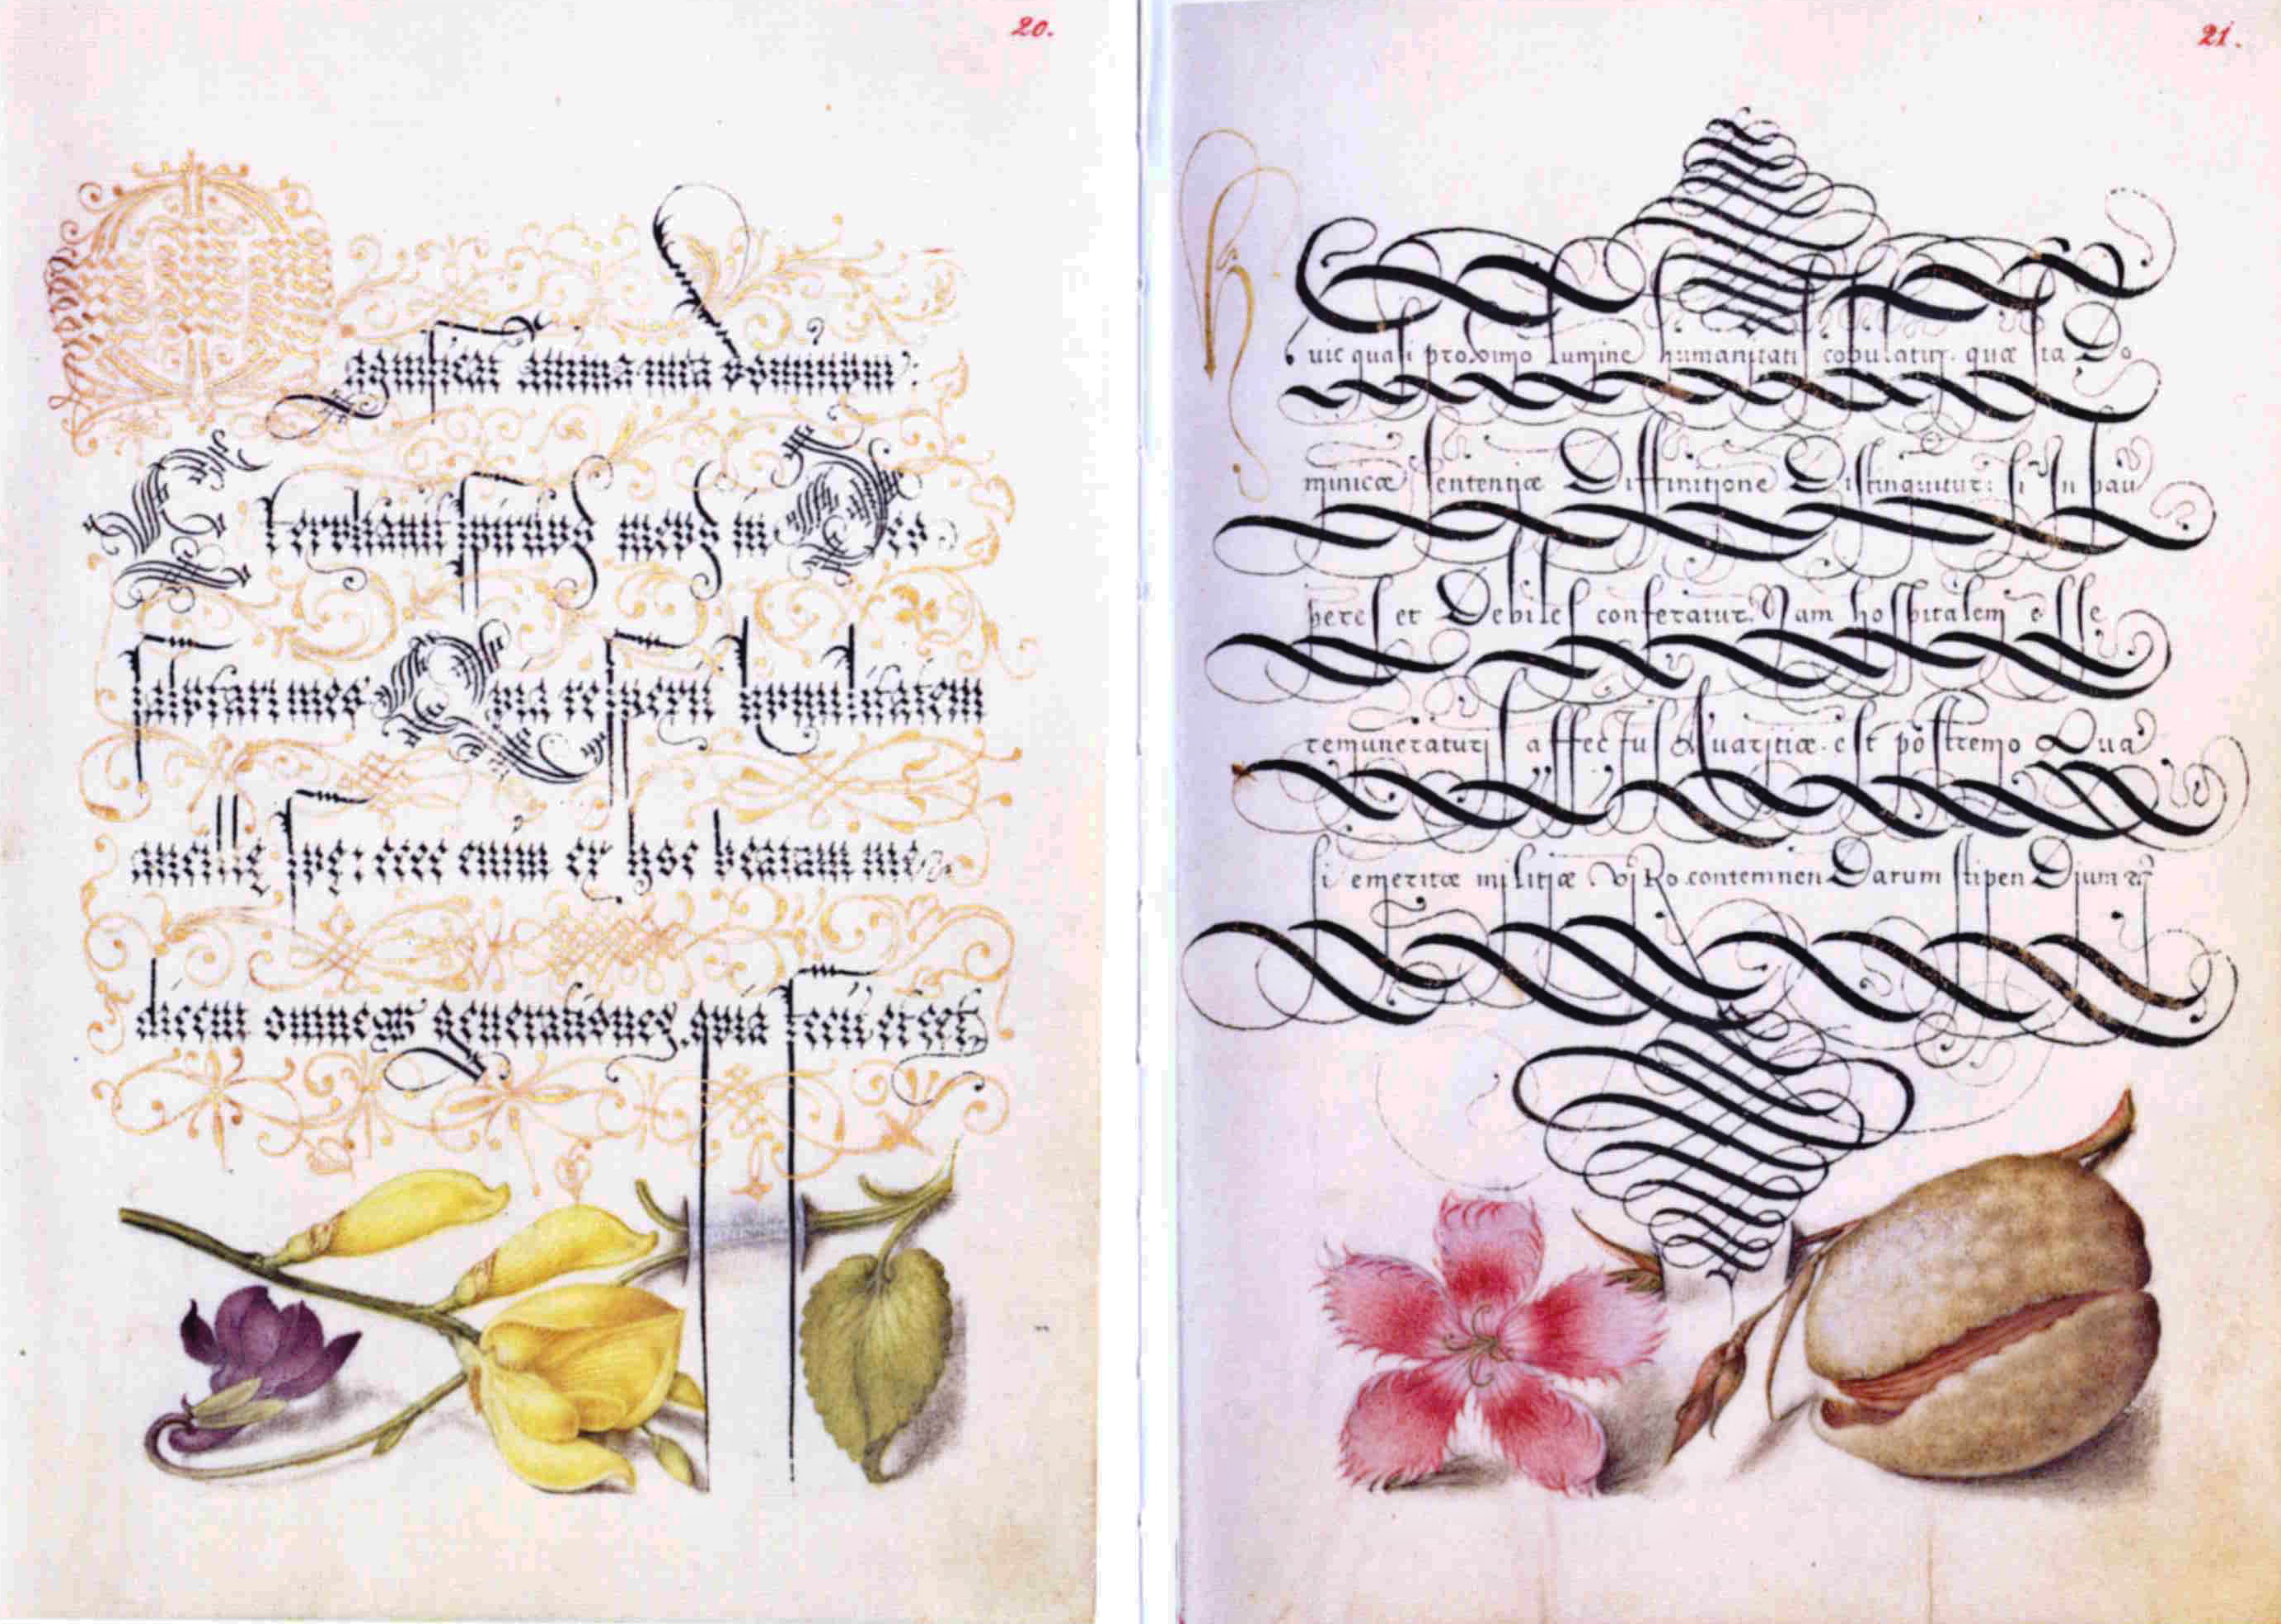 20.
Magnificat anima mea dominum:
Et exultauit spiritus meus in Deo
salutari meo Quia respexit humilitatem
ancille sue: ecce enim ex hoc beatam me
dicent omnes generationes, quia fecit et cet
21.
Huic quasi proximo lumine humanitatis copulatur. quæ ita Do
minicæ sententiæ Diffinitione Distinguitur: si In pau
peres et Debiles conferatur. Nam hospitalem esse
remuneraturis affectus Auaritiæ. est postremo Qua
si emeritæ militiæ viRo contemnenDarum stipenDium